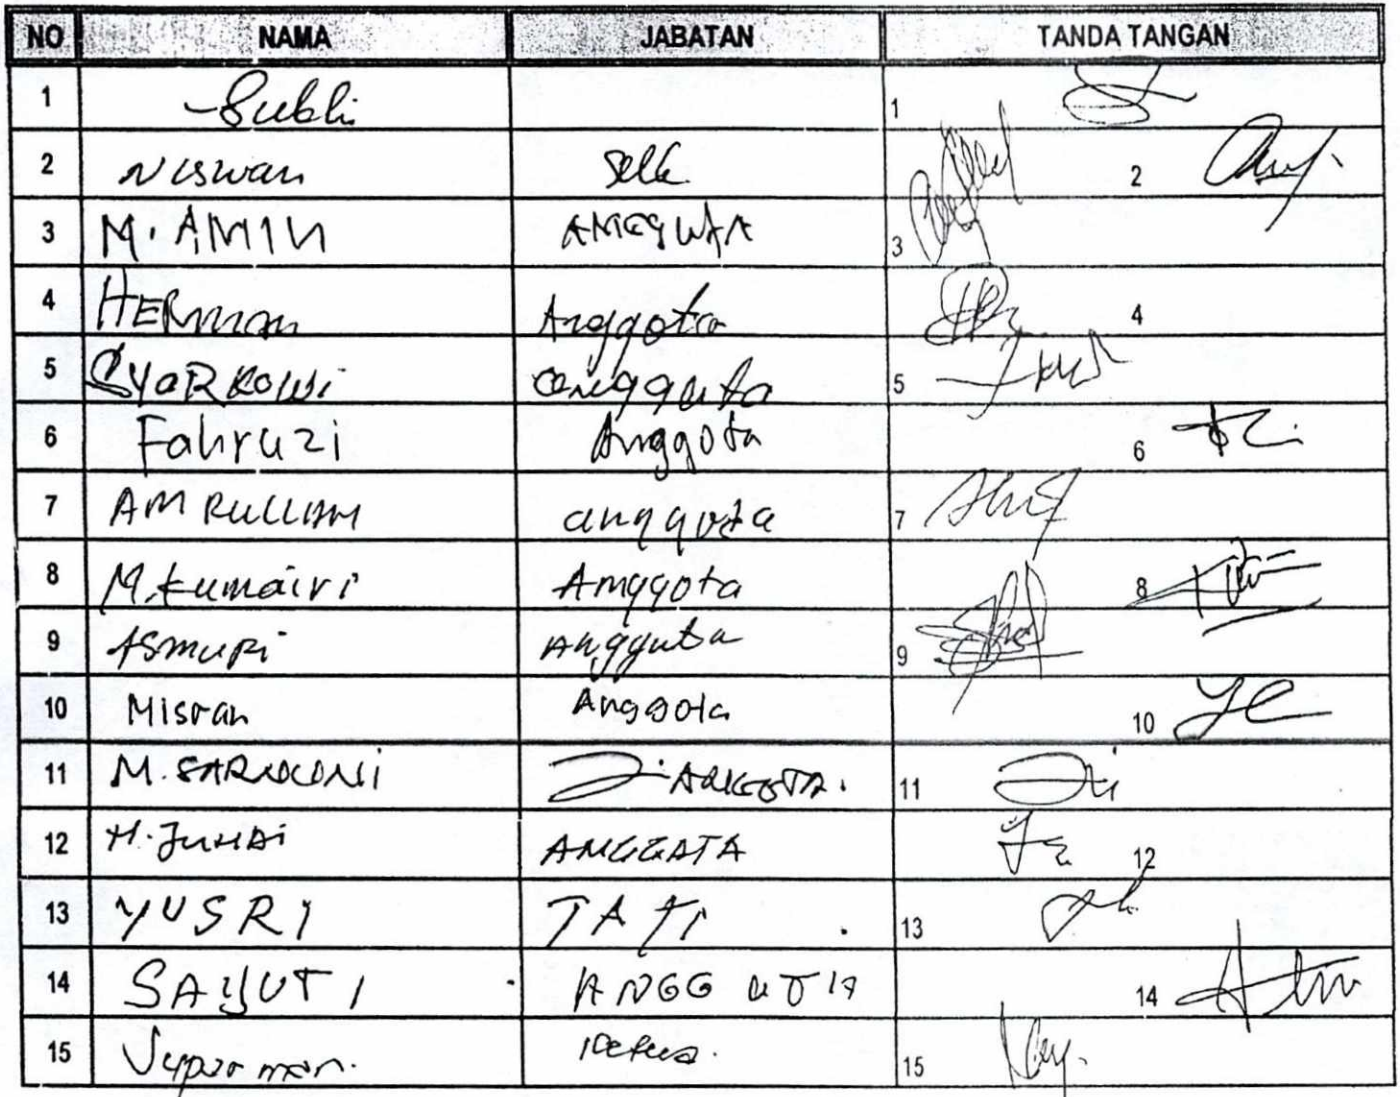 NO NAMA JABATAN TANDA TANGAN
1 Subli 1
2 Niswan Sek 2
3 M. AMIN 3
4 HERMAN Anggota 4
5 SYARKOWI angguta 5
6 Fahruzi Anggota 6
7 AMRULLAH anggota 7
8 M. Kumairi Amggota 8
9 ASMURI Angguta 9
10 Misran Anggota 10
11 M. SARKONI 11
12 H. JUHDI ANGGATA 12
13 YUSRI 13
14 SAYUTI ANGGUTA 14
15 Suparman. Ketua. 15